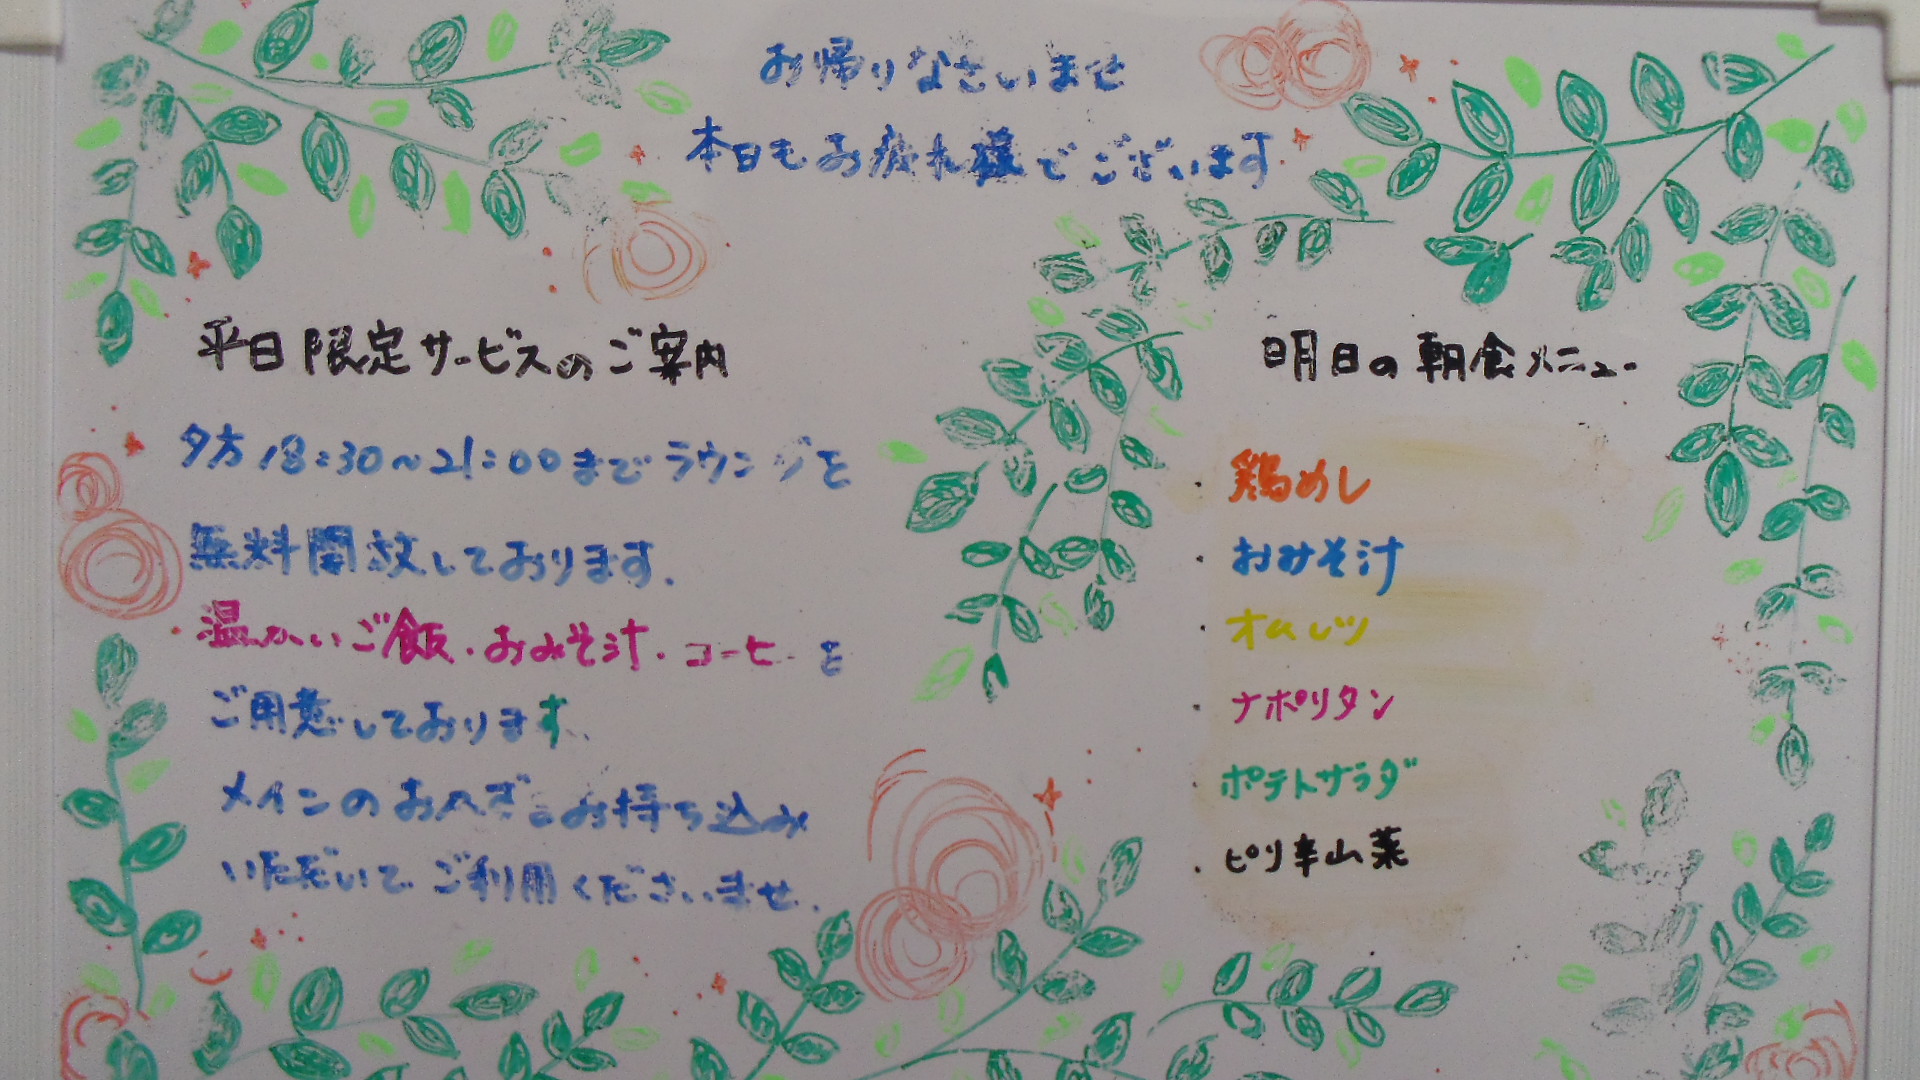 お帰りなさいませ
本日もお疲れ様でございます
平日限定サービスのご案内
夕方18:30～21:00までラウンジを
無料開放しております.
温かいご飯・おみそ汁・コーヒーを
ご用意しております.
メインのおかずはお持ち込み
いただいてご利用くださいませ.
明日の朝食メニュー
・鶏めし
・おみそ汁
・オムレツ
・ナポリタン
・ポテトサラダ
・ピリ辛山菜